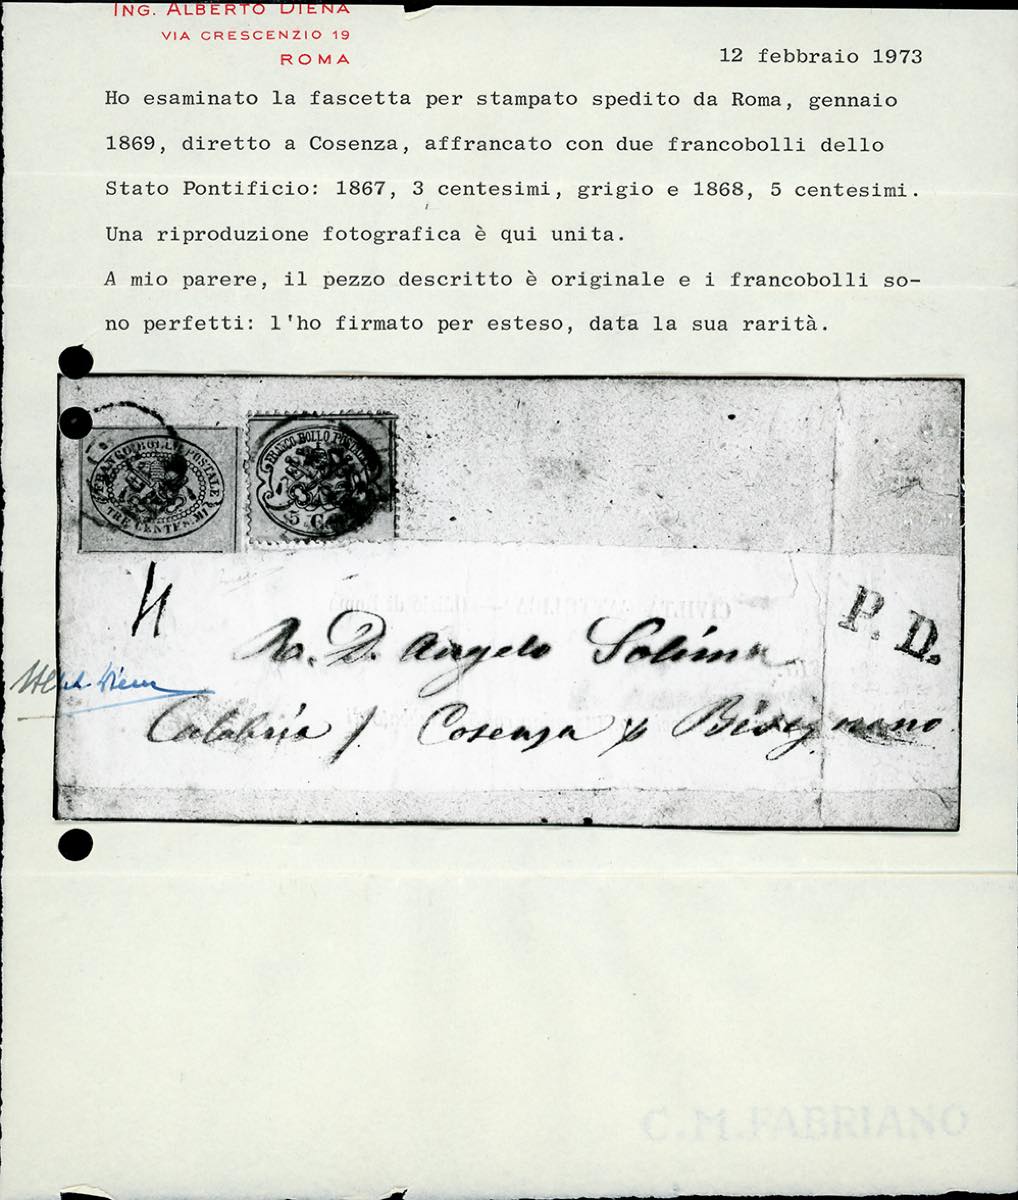 ING. ALBERTO DIENA
VIA CRESCENZIO 19
ROMA
12 febbraio 1973
Ho esaminato la fascetta per stampato spedito da Roma, gennaio
1869, diretto a Cosenza, affrancato con due francobolli dello
Stato Pontificio: 1867, 3 centesimi, grigio e 1868, 5 centesimi.
Una riproduzione fotografica è qui unita.
A mio parere, il pezzo descritto è originale e i francobolli so-
no perfetti: l'ho firmato per esteso, data la sua rarità.
FRANCO BOLLO POSTALE
TRE CENTESIMI
FRANCO BOLLO POSTALE
5 C
CIVILTÀ CATTOLICA
P. D.
D. Angelo Solima
Calabria / Cosenza Bisignano
C.M.FABRIANO